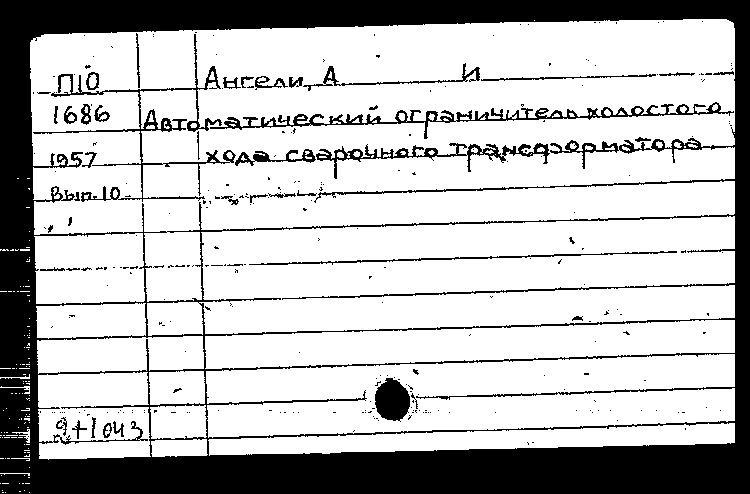 П10 Ангели, А И
1686 Автоматический ограничитель холостого
1957 хода сварочного трансформатора.
Вып. 10
2+1 043